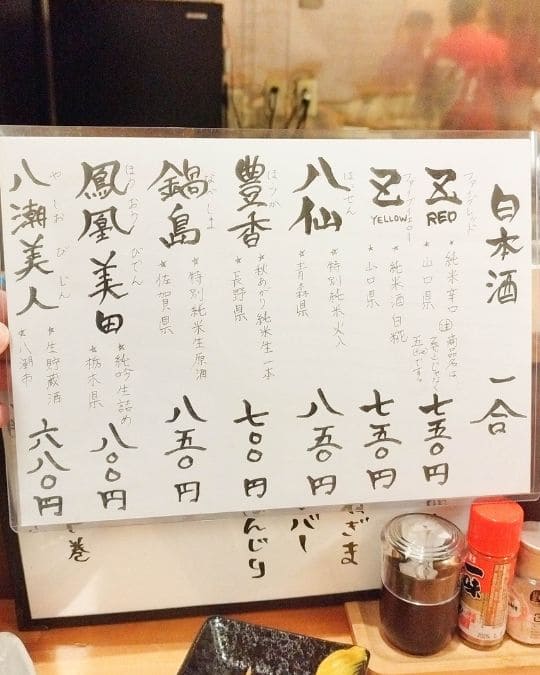 日本酒 一合
ファイブレッド
五 RED
★純米辛口
★山口県
七五〇円
ファイブイエロー
五 YELLOW
★純米酒白糀
★山口県
七五〇円
はっせん
八仙
★特別純米火入
★青森県
八五〇円
ほうか
豊香
★秋あがり純米生一本
★長野県
七〇〇円
なべしま
鍋島
★特別純米生原酒
★佐賀県
八五〇円
ほうおうびでん
鳳凰美田
★純吟生詰め
★栃木県
八〇〇円
やしおびじん
八潮美人
★生貯蔵酒
★八潮市
六八〇円
ぎま
バー
んじり
巻
一味